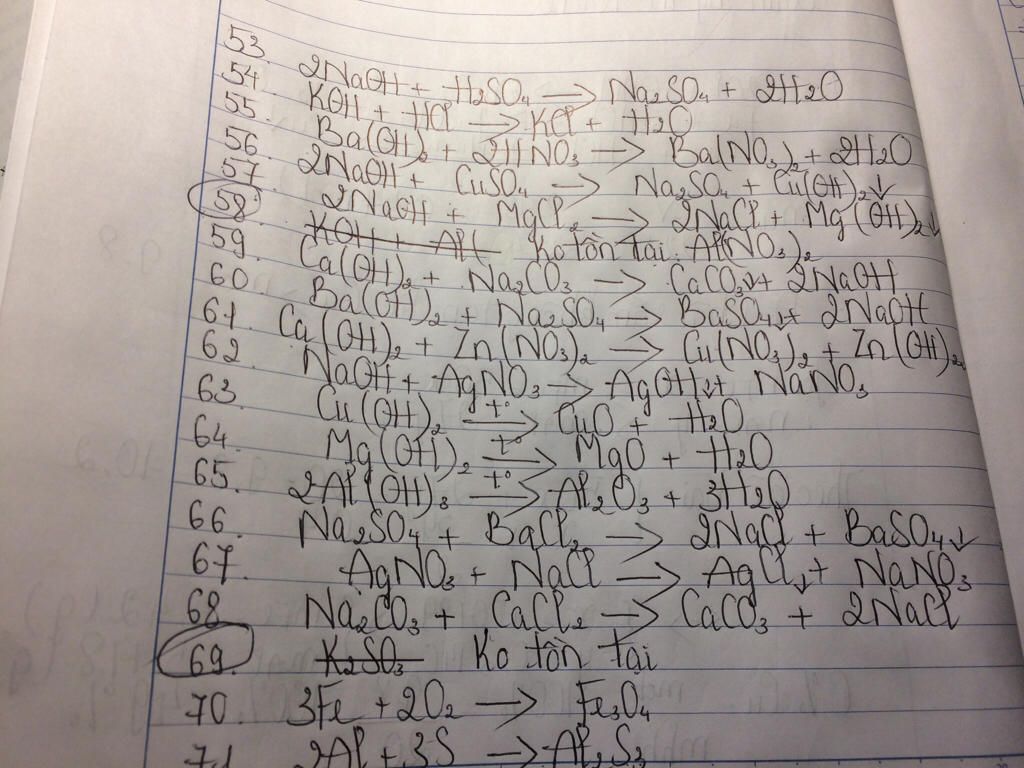 53. 2NaOH + H₂SO₄ → Na₂SO₄ + 2H₂O
54. KOH + HCl → KCl + H₂O
55. Ba(OH)₂ + 2HNO₃ → Ba(NO₃)₂ + 2H₂O
56. 2NaOH + CuSO₄ → Na₂SO₄ + Cu(OH)₂↓
57. 2NaOH + MgCl₂ → 2NaCl + Mg(OH)₂↓
58. KOH + Al( Ko tồn tại Al(NO₃)₂
59. Ca(OH)₂ + Na₂CO₃ → CaCO₃↓ + 2NaOH
60. Ba(OH)₂ + Na₂SO₄ → BaSO₄↓ + 2NaOH
61. Ca(OH)₂ + Zn(NO₃)₂ → Cu(NO₃)₂ + Zn(OH)₂↓
62. NaOH + AgNO₃ → AgOH↓ + NaNO₃
63. Cu(OH)₂ –t°→ CuO + H₂O
64. Mg(OH)₂ –t°→ MgO + H₂O
65. 2Al(OH)₃ –t°→ Al₂O₃ + 3H₂O
66. Na₂SO₄ + BaCl₂ → 2NaCl + BaSO₄↓
67. AgNO₃ + NaCl → AgCl↓ + NaNO₃
68. Na₂CO₃ + CaCl₂ → CaCO₃ + 2NaCl
69. K₂SO₃ Ko tồn tại
70. 3Fe + 2O₂ → Fe₃O₄
71. 2Al + 3S → Al₂S₃